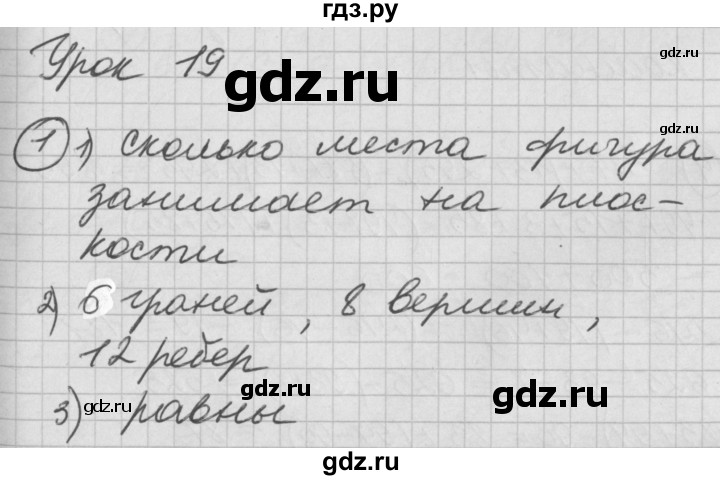 гдз.ру
Урок 19
gdz.ru
gdz.ru
1 1) сколько места фигура
gdz.ru
занимает на плос-
кости
2) 6 граней, 8 вершин,
12 ребер
3) равны
gdz.ru
gdz.ru
gdz.ru
gdz.ru